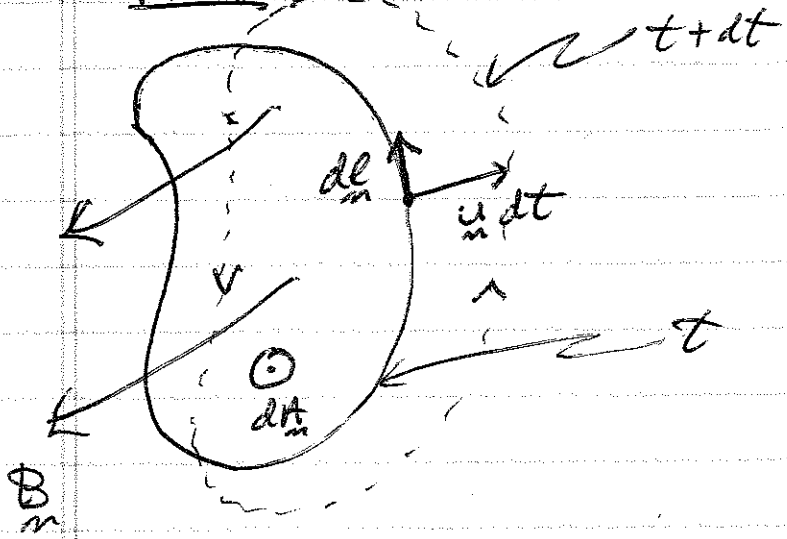 t+dt
dl
u dt
t
dA
B